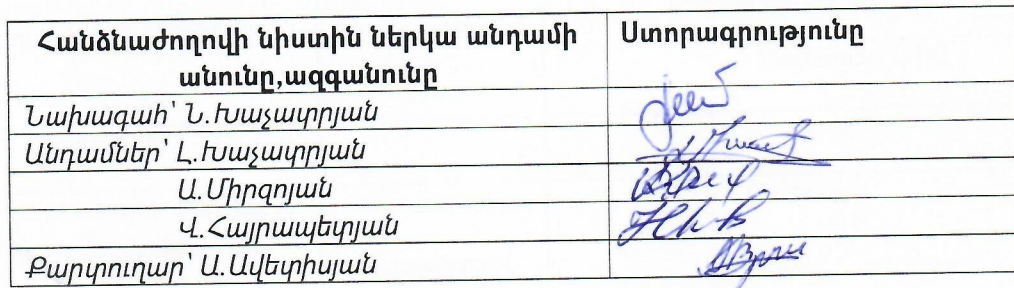 Հանձնաժողովի նիստին ներկա անդամի Ստորագրությունը
անունը,ազգանունը
Նախագահ՝ Ն.Խաչատրյան
Անդամներ՝ Լ.Խաչատրյան
Ա.Միրզոյան
Վ.Հայրապետյան
Քարտուղար՝ Ա.Ավետիսյան